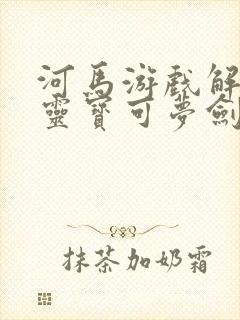 河馬游戲解
靈寶可夢劍
抹茶加奶霜